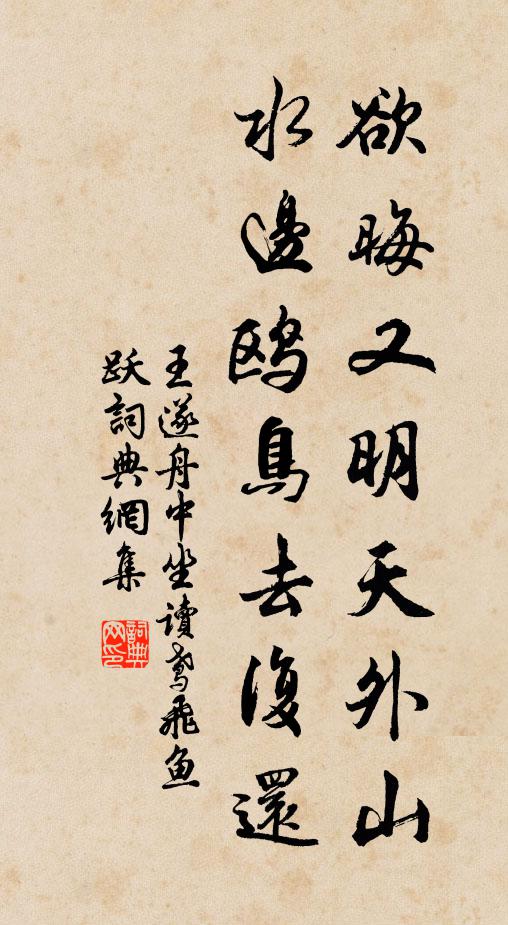 欲晦又明天外山
水邊鷗鳥去復還
王遂舟中坐讀鸢飛鱼
跃詞典網集
詞典
网印